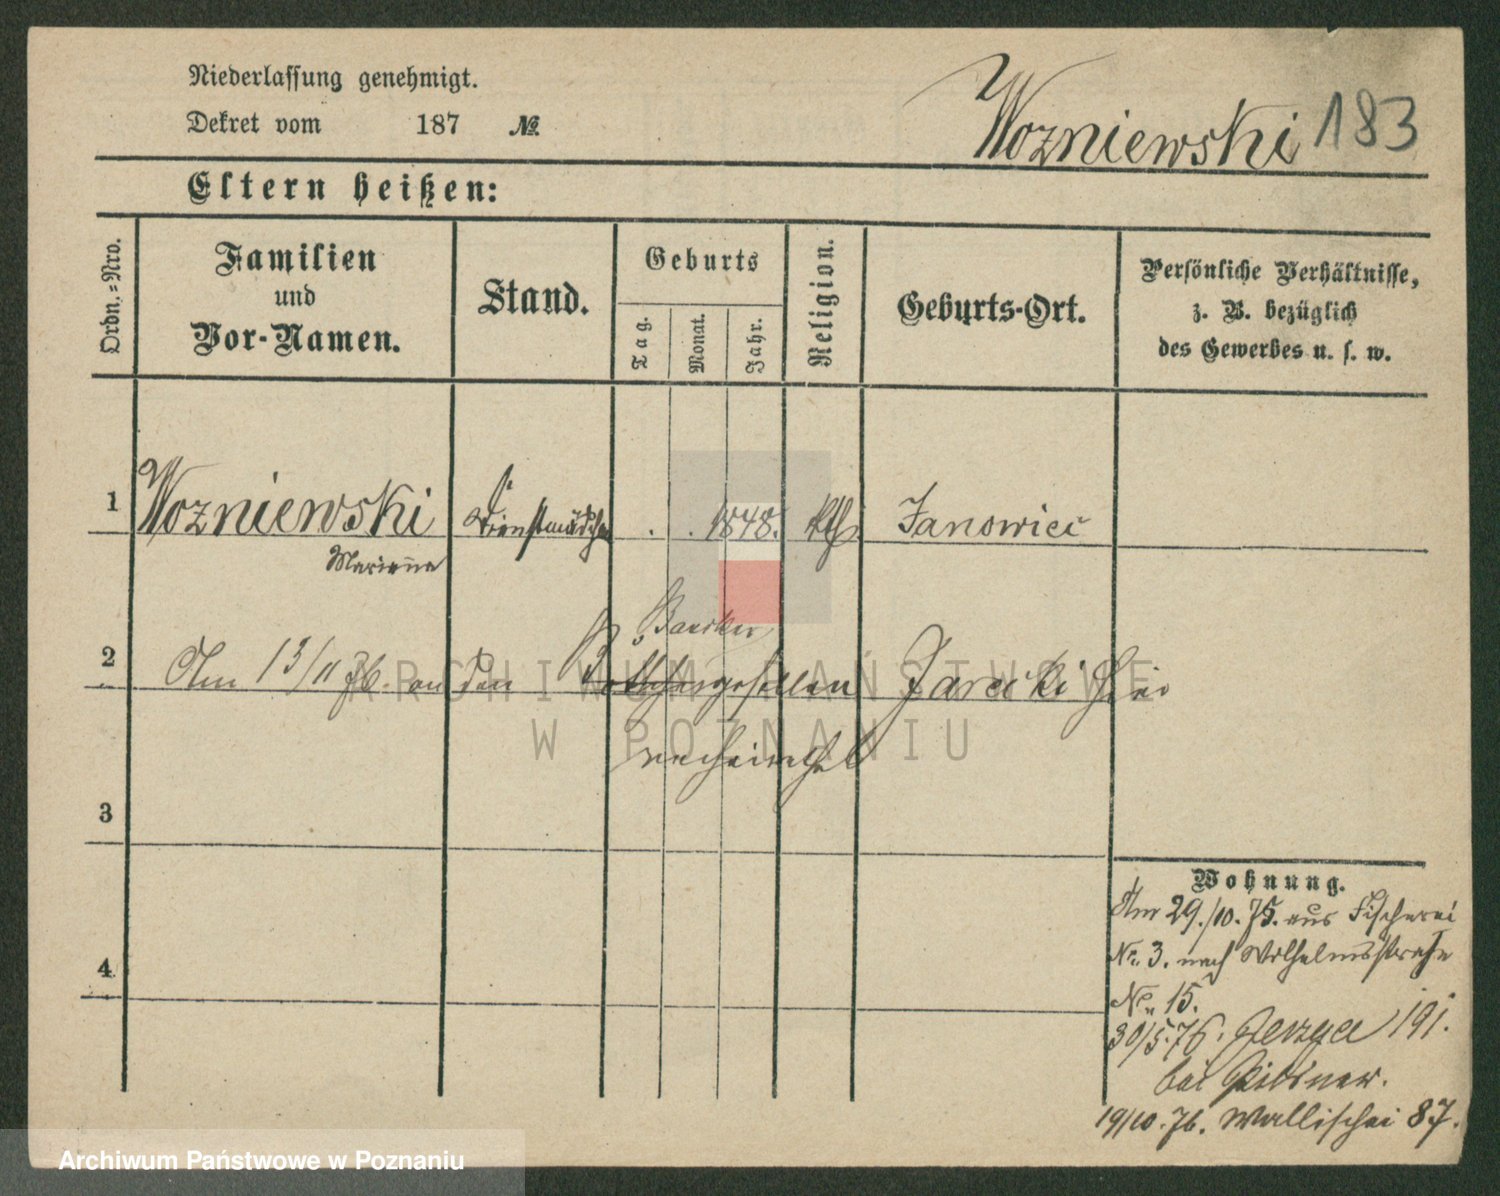 Niederlassung genehmigt.
Dekret vom 187 №
Wozniewski 183
Eltern heißen:
Ordn.=Nro.
Familien
und
Vor-Namen.
Stand.
Geburts
Tag.
Monat.
Jahr.
Religion.
Geburts-Ort.
Persönliche Verhältnisse,
z. B. bezüglich
des Gewerbes u. s. w.
1 Wozniewski Dienstmädchen . . 1848. kth. Janowiec
Marianna
2 Am 13/11 76. an den Böttchergesellen Jarecki hier
verheirathet
3
4
Wohnung.
Am 29./10. 75. aus Fischerei
No. 3. nach Wilhelmsstraße
No. 15.
30/5. 76. Jerzyce 191.
bei
19/10. 76. Wallischei 87.
ARCHIWUM PAŃSTWOWE
W POZNANIU
Archiwum Państwowe w Poznaniu